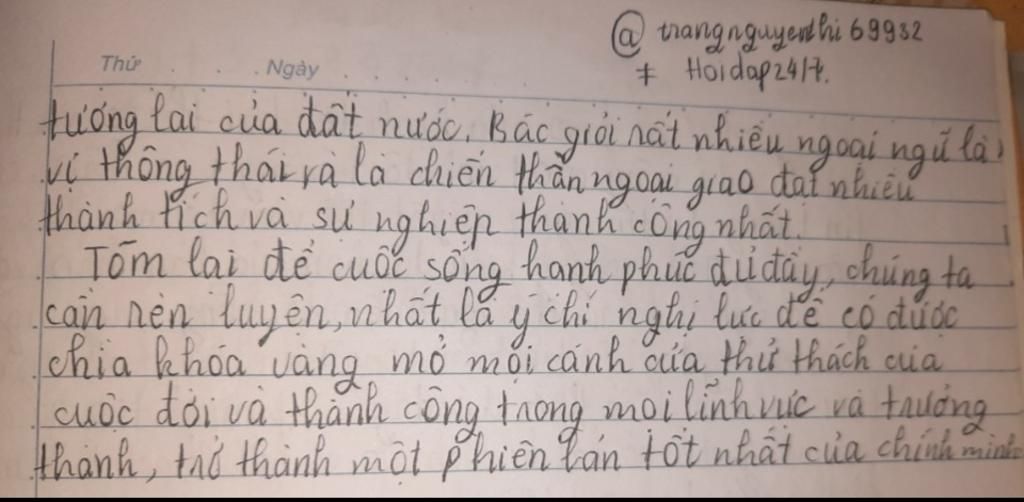 @ trangnguyenthi 69932
# Hoidap247.
Thứ Ngày
tương lai của đất nước. Bác giỏi rất nhiều ngoại ngữ là
vị thông thái và là chiến thần ngoại giao đạt nhiều
thành tích và sự nghiệp thành công nhất.
Tóm lại để cuộc sống hạnh phúc đủ đầy, chúng ta
cần rèn luyện, nhất là ý chí nghị lực để có được
chìa khóa vàng mở mọi cánh cửa thử thách của
cuộc đời và thành công trong mọi lĩnh vực và trưởng
thành, trở thành một phiên bản tốt nhất của chính mình